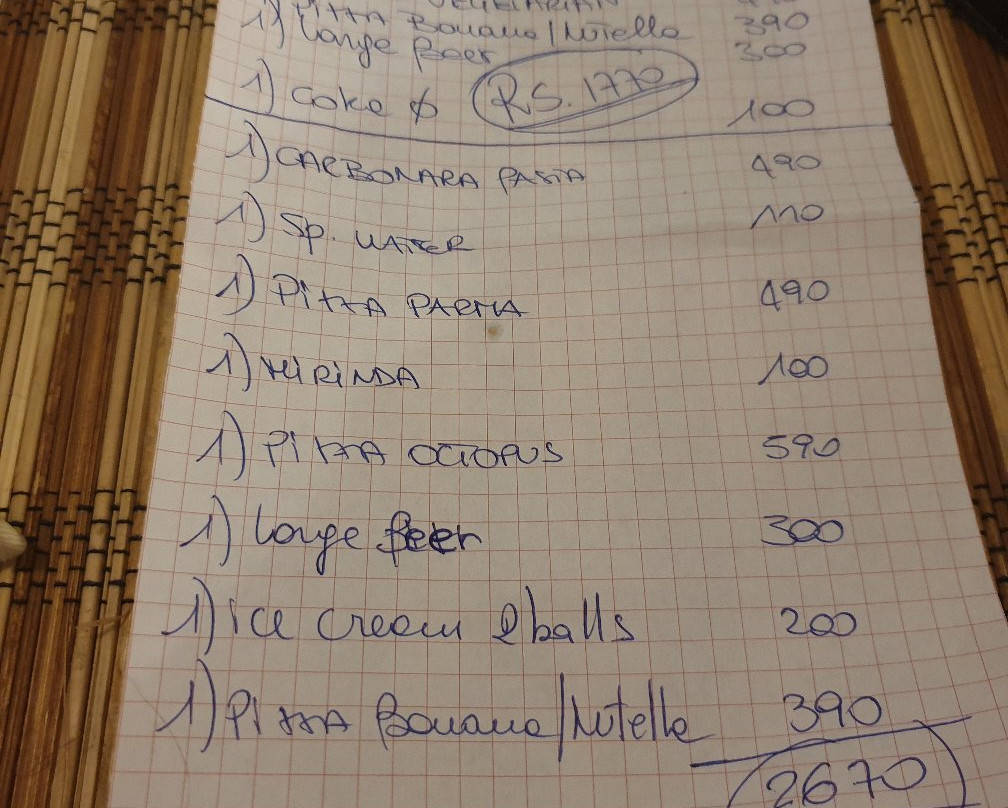 1) Pizza Banana/Nutella 390
1) Large Beer 300
1) Coke RS. 1770 100
1) CARBONARA PASTA 490
1) Sp. WATER 110
1) Pizza PARMA 490
1) MIRINDA 100
1) Pizza OCTOPUS 590
1) Large Beer 300
1) ice cream 2balls 200
1) Pizza Banana/Nutella 390
2670